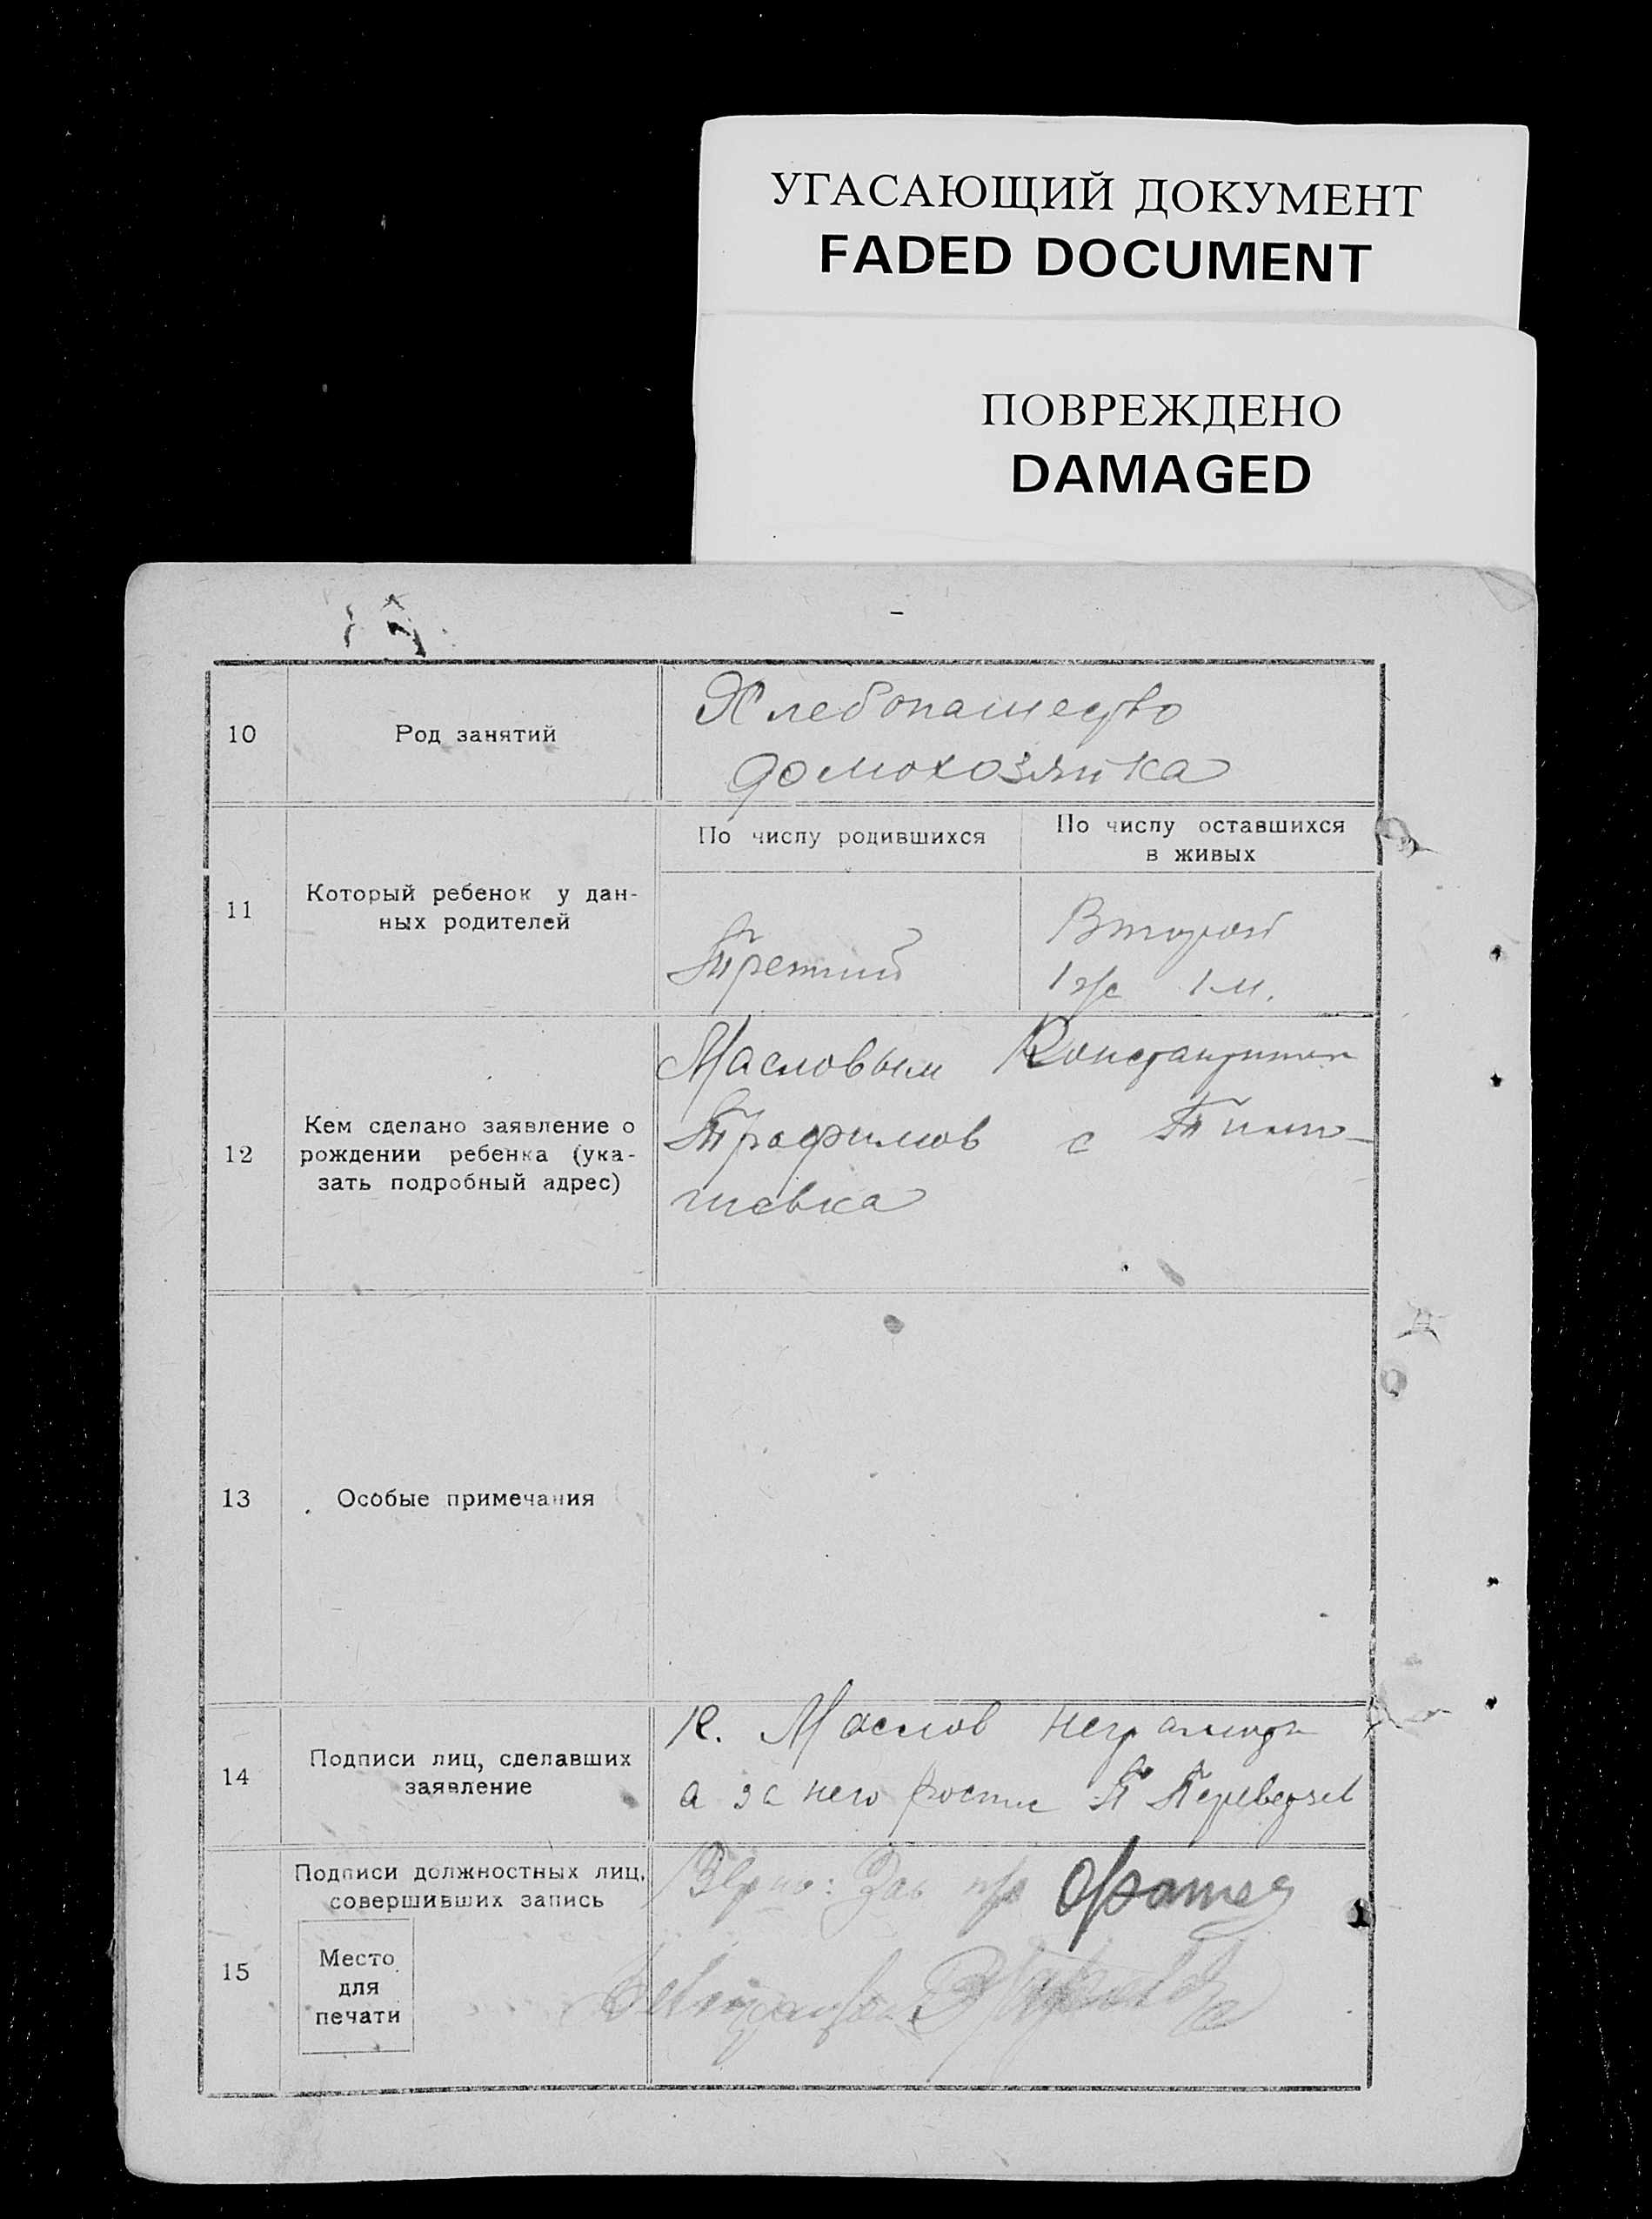 УГАСАЮЩИЙ ДОКУМЕНТ
FADED DOCUMENT
ПОВРЕЖДЕНО
DAMAGED
10
Род занятий
Хлебопашество
домохозяйка
11
Который ребенок у дан-
ных родителей
По числу родившихся
По числу оставшихся
в живых
Третий
Второй
1 ж 1 м.
12
Кем сделано заявление о
рождении ребенка (ука-
зать подробный адрес)
Масловым Константином
Трафимов с
13
Особые примечания
14
Подписи лиц, сделавших
заявление
К. Маслов неграмотн
а за него роспис П Переверзев
15
Подписи должностных лиц,
совершивших запись
Место
для
печати
Верно: Зав